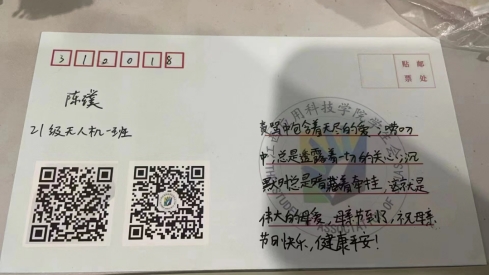 312018
贴 邮
票 处
陈镤
21级无人机一班
责骂中包含着无尽的爱；唠叨
中,总是透露着一切的关心;沉
默时总是暗藏着牵挂,这就是
伟大的母爱,母亲节到了,祝母亲
节日快乐,健康平安!
用科技学院学